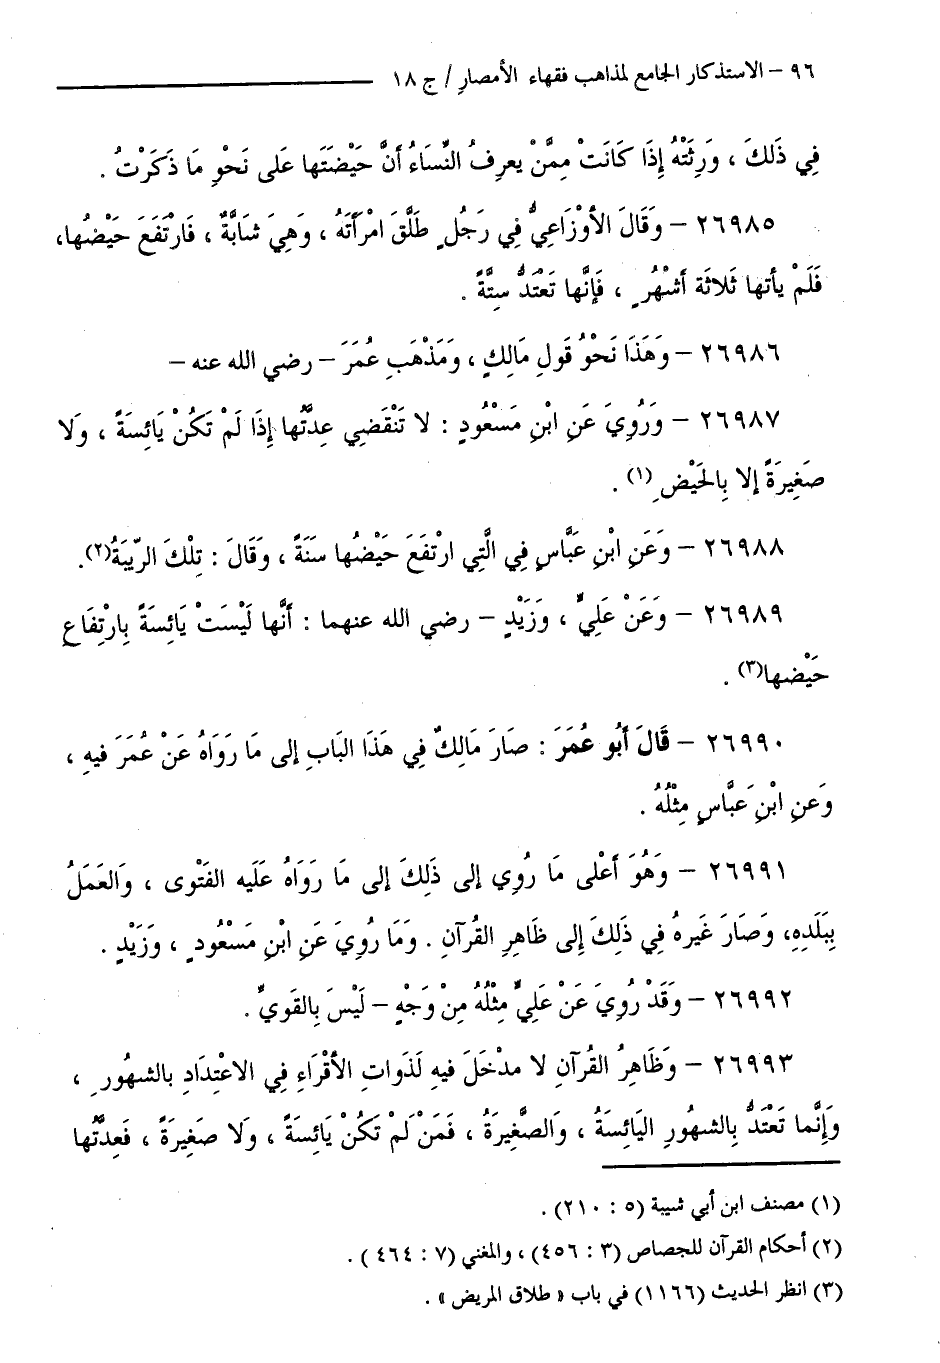 ٩٦ – الاستذكار الجامع لمذاهب فقهاء الأمصار / ج ١٨
فِي ذَلكَ ، وَرِثَتْهُ إِذَا كَانَتْ مِمَّنْ يعرِفُ النِّسَاءُ أنَّ حَيْضَتَها عَلى نَحْوِ مَا ذَكَرْتُ .
٢٦٩٨٥ – وَقَالَ الأوْزَاعِيُّ فِي رَجُلٍ طَلَّقَ امْرأتَهُ ، وَهِيَ شَابَّةٌ ، فَارْتَفَعَ حَيْضُها،
فَلَمْ يأتها ثَلاثَة أشْهُرٍ ، فَإِنَّها تَعْتَدُّ سَنَةً .
٢٦٩٨٦ – وَهَذَا نَحْوُ قَولِ مَالِكٍ ، وَمَذْهَبِ عُمَرَ – رضي الله عنه –
٢٦٩٨٧ – وَرُوِيَ عَنِ ابْنِ مَسْعُودٍ : لا تَنْقَضِي عِدَّتُها إِذَا لَمْ تَكُنْ يَائِسَةً ، وَلا
صَغِيرَةً إلا بِالحَيْضِ (١) .
٢٦٩٨٨ – وَعَنِ ابْنِ عَبَّاسٍ فِي الَّتِي ارْتَفَعَ حَيْضُها سَنَةً ، وَقَالَ : تِلْكَ الرِّيبَةُ(٢).
٢٦٩٨٩ – وَعَنْ عَلِيٍّ ، وَزَيْدٍ – رضي الله عنهما : أنَّها لَيْسَتْ يَائِسَةً بِارْتِفَاعِ
حَيْضها(٣) .
٢٦٩٩٠ – قَالَ أَبُو عُمَرَ : صَارَ مَالِكٌ فِي هَذَا البَابِ إلى مَا رَوَاهُ عَنْ عُمَرَ فيهِ ،
وَعنِ ابْنِ عَبَّاسٍ مِثْلُهُ .
٢٦٩٩١ – وَهُوَ أعْلى مَا رُوِي إلى ذَلِكَ إلى مَا رَوَاهُ عَلَيه الفَتْوى ، وَالعَمَلُ
بِبَلَدِهِ، وَصَارَ غَيرهُ فِي ذَلِكَ إلى ظَاهِرِ القُرآنِ . وَمَا رُوِيَ عَنِ ابْنِ مَسْعُودٍ ، وَزَيْدٍ .
٢٦٩٩٢ – وَقَدْ رُوِيَ عَنْ عَلِيٍّ مِثْلُهُ مِنْ وَجْهٍ – لَيْسَ بِالقَوِيِّ .
٢٦٩٩٣ – وَظَاهِرُ القُرآنِ لا مدْخَلَ فيهِ لَذَوَاتِ الأقْرَاءِ فِي الاعْتِدَادِ بالشهُورِ ،
وَإِنَّما تَعْتَدُّ بِالشهُورِ اليَائِسَةُ ، وَالصَّغِيرَةُ ، فَمَنْ لَمْ تَكُنْ يَائِسَةً ، وَلا صَغِيرَةً ، فَعِدَّتُها
(١) مصنف ابن أبي شيبة (٥ : ٢١٠) .
(٢) أحكام القرآن للجصاص (٣ : ٤٥٦) ، والمغني (٧ : ٤٦٤ ) .
(٣) انظر الحديث (١١٦٦) في باب « طلاق المريض » .